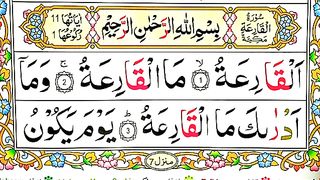 سُوْرَةُ الْقَارِعَةِ مَكِّيَّةٌ
بِسْمِ اللّٰهِ الرَّحْمٰنِ الرَّحِيْمِ
اٰيَاتُهَا ١١ رُكُوْعُهَا ١
اَلْقَارِعَةُ ۙ﴿1﴾ مَا الْقَارِعَةُ ۚ﴿2﴾ وَمَاۤ
اَدْرٰىكَ مَا الْقَارِعَةُ ؕ﴿3﴾ يَوْمَ يَكُوْنُ
منزل 7